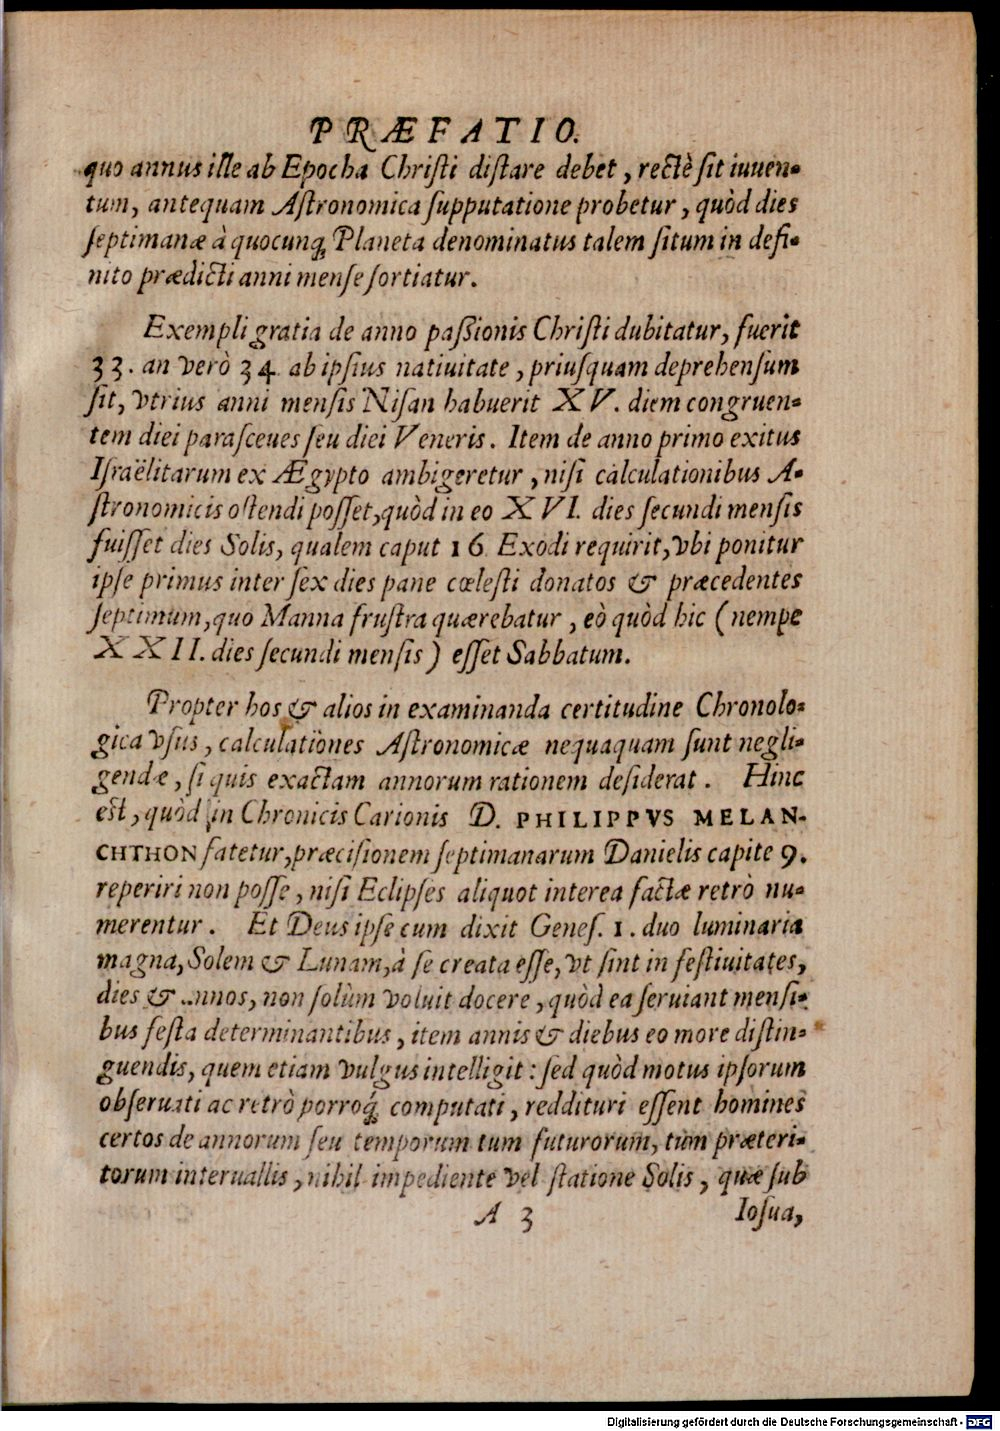 PRÆFATIO.
quo annus ille ab Epocha Christi distare debet, rectè sit iuuen-
tum, antequam Astronomica supputatione probetur, quòd dies
septimanæ à quocunq; Planeta denominatus talem situm in defi-
nito prædicti anni mense sortiatur.
Exempli gratia de anno passionis Christi dubitatur, fuerit
33. an verò 34 ab ipsius natiuitate, priusquam deprehensum
sit, vtrius anni mensis Nisan habuerit XV. diem congruen-
tem diei parasceues seu diei Veneris. Item de anno primo exitus
Israëlitarum ex Ægypto ambigeretur, nisi calculationibus A-
stronomicis ostendi posset, quòd in eo XVI. dies secundi mensis
fuisset dies Solis, qualem caput 16 Exodi requirit, vbi ponitur
ipse primus inter sex dies pane cœlesti donatos & præcedentes
septimum, quo Manna frustra quærebatur, eò quòd hic (nempe
XXII. dies secundi mensis) esset Sabbatum.
Propter hos & alios in examinanda certitudine Chronolo-
gica vsus, calculationes Astronomicæ nequaquam sunt negli-
gendæ, si quis exactam annorum rationem desiderat. Hinc
est, quòd in Chronicis Carionis D. PHILIPPVS MELAN-
CHTHON fatetur, præcisionem septimanarum Danielis capite 9.
reperiri non posse, nisi Eclipses aliquot interea factæ retrò nu-
merentur. Et Deus ipse cum dixit Genes. 1. duo luminaria
magna, Solem & Lunam, à se creata esse, vt sint in festiuitates,
dies & ..nnos, non solùm voluit docere, quòd ea seruiant mensi-
bus festa determinantibus, item annis & diebus eo more distin-
guendis, quem etiam vulgus intelligit: sed quòd motus ipsorum
obseruati ac retrò porroq́; computati, reddituri essent homines
certos de annorum seu temporum tum futurorum, tùm præteri-
torum interuallis, nihil impediente vel statione Solis, quæ sub
A 3 Iosua,
Digitalisierung gefördert durch die Deutsche Forschungsgemeinschaft - DFG